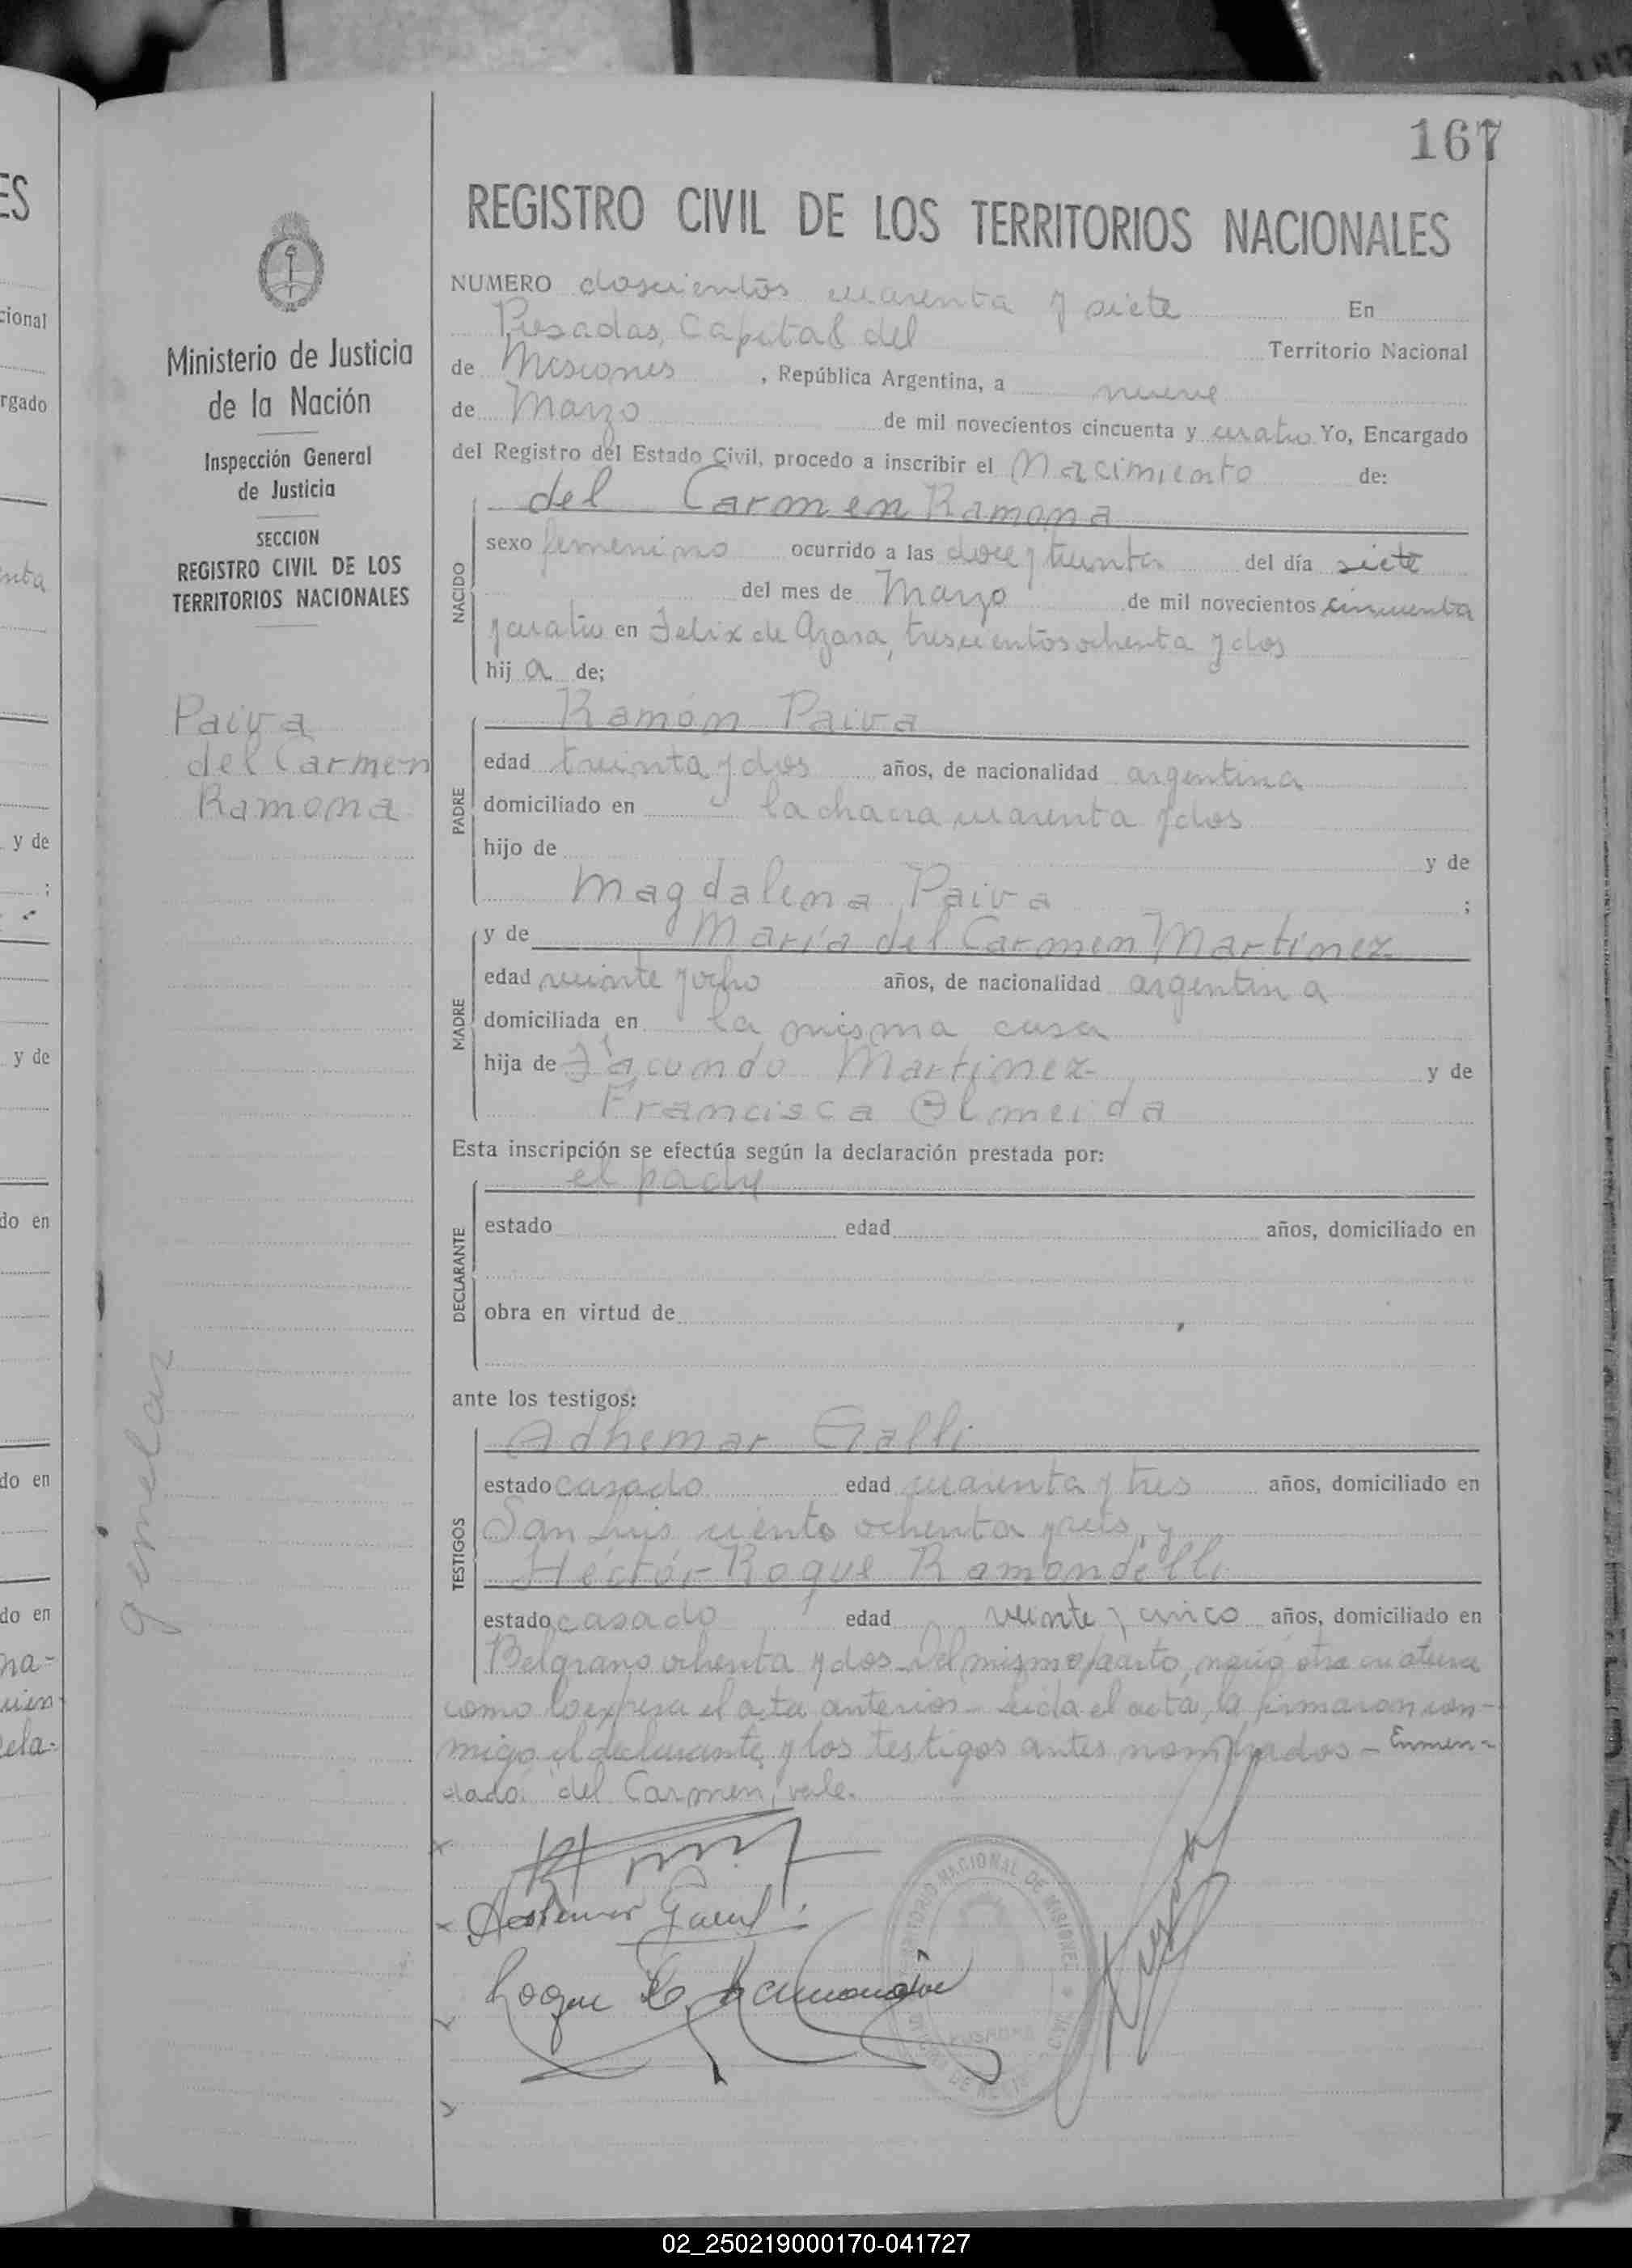 167
REGISTRO CIVIL DE LOS TERRITORIOS NACIONALES
NUMERO doscientos cuarenta y siete En
Posadas, Capital del Territorio Nacional
de Misiones, República Argentina, a nueve
de Marzo de mil novecientos cincuenta y cuatro Yo, Encargado
del Registro del Estado Civil, procedo a inscribir el Nacimiento de:
del Carmen Ramona
NACIDO
sexo femenino ocurrido a las doce y treinta del día siete
del mes de Marzo de mil novecientos cincuenta
y cuatro en Felix de Azara, trescientos ochenta y dos
hij a de;
Ramón Paiva
PADRE
edad treinta y dos años, de nacionalidad argentina
domiciliado en la chacra cuarenta y dos
hijo de y de
Magdalena Paiva ;
y de María del Carmen Martinez
MADRE
edad veinte y ocho años, de nacionalidad argentina
domiciliada en la misma casa
hija de Facundo Martinez y de
Francisca Olmeida
Esta inscripción se efectúa según la declaración prestada por:
el padre
DECLARANTE
estado edad años, domiciliado en
obra en virtud de
ante los testigos:
Adhemar Galli
TESTIGOS
estado casado edad cuarenta y tres años, domiciliado en
San Luis ciento ochenta y seis, y
Héctor Roque Ramondelli
estado casado edad veinte y cinco años, domiciliado en
Belgrano ochenta y dos - Del mismo parto, nació otra criatura
como lo expresa el acta anterior - Leida el acta, la firmaron con-
migo el declarante y los testigos antes nombrados - Enmen-
dado: del Carmen, vale.
Ministerio de Justicia
de la Nación
Inspección General
de Justicia
SECCION
REGISTRO CIVIL DE LOS
TERRITORIOS NACIONALES
Paiva
del Carmen
Ramona
gemelar
ES
cional
rgado
y de
;
y de
do en
do en
do en
02_250219000170-041727